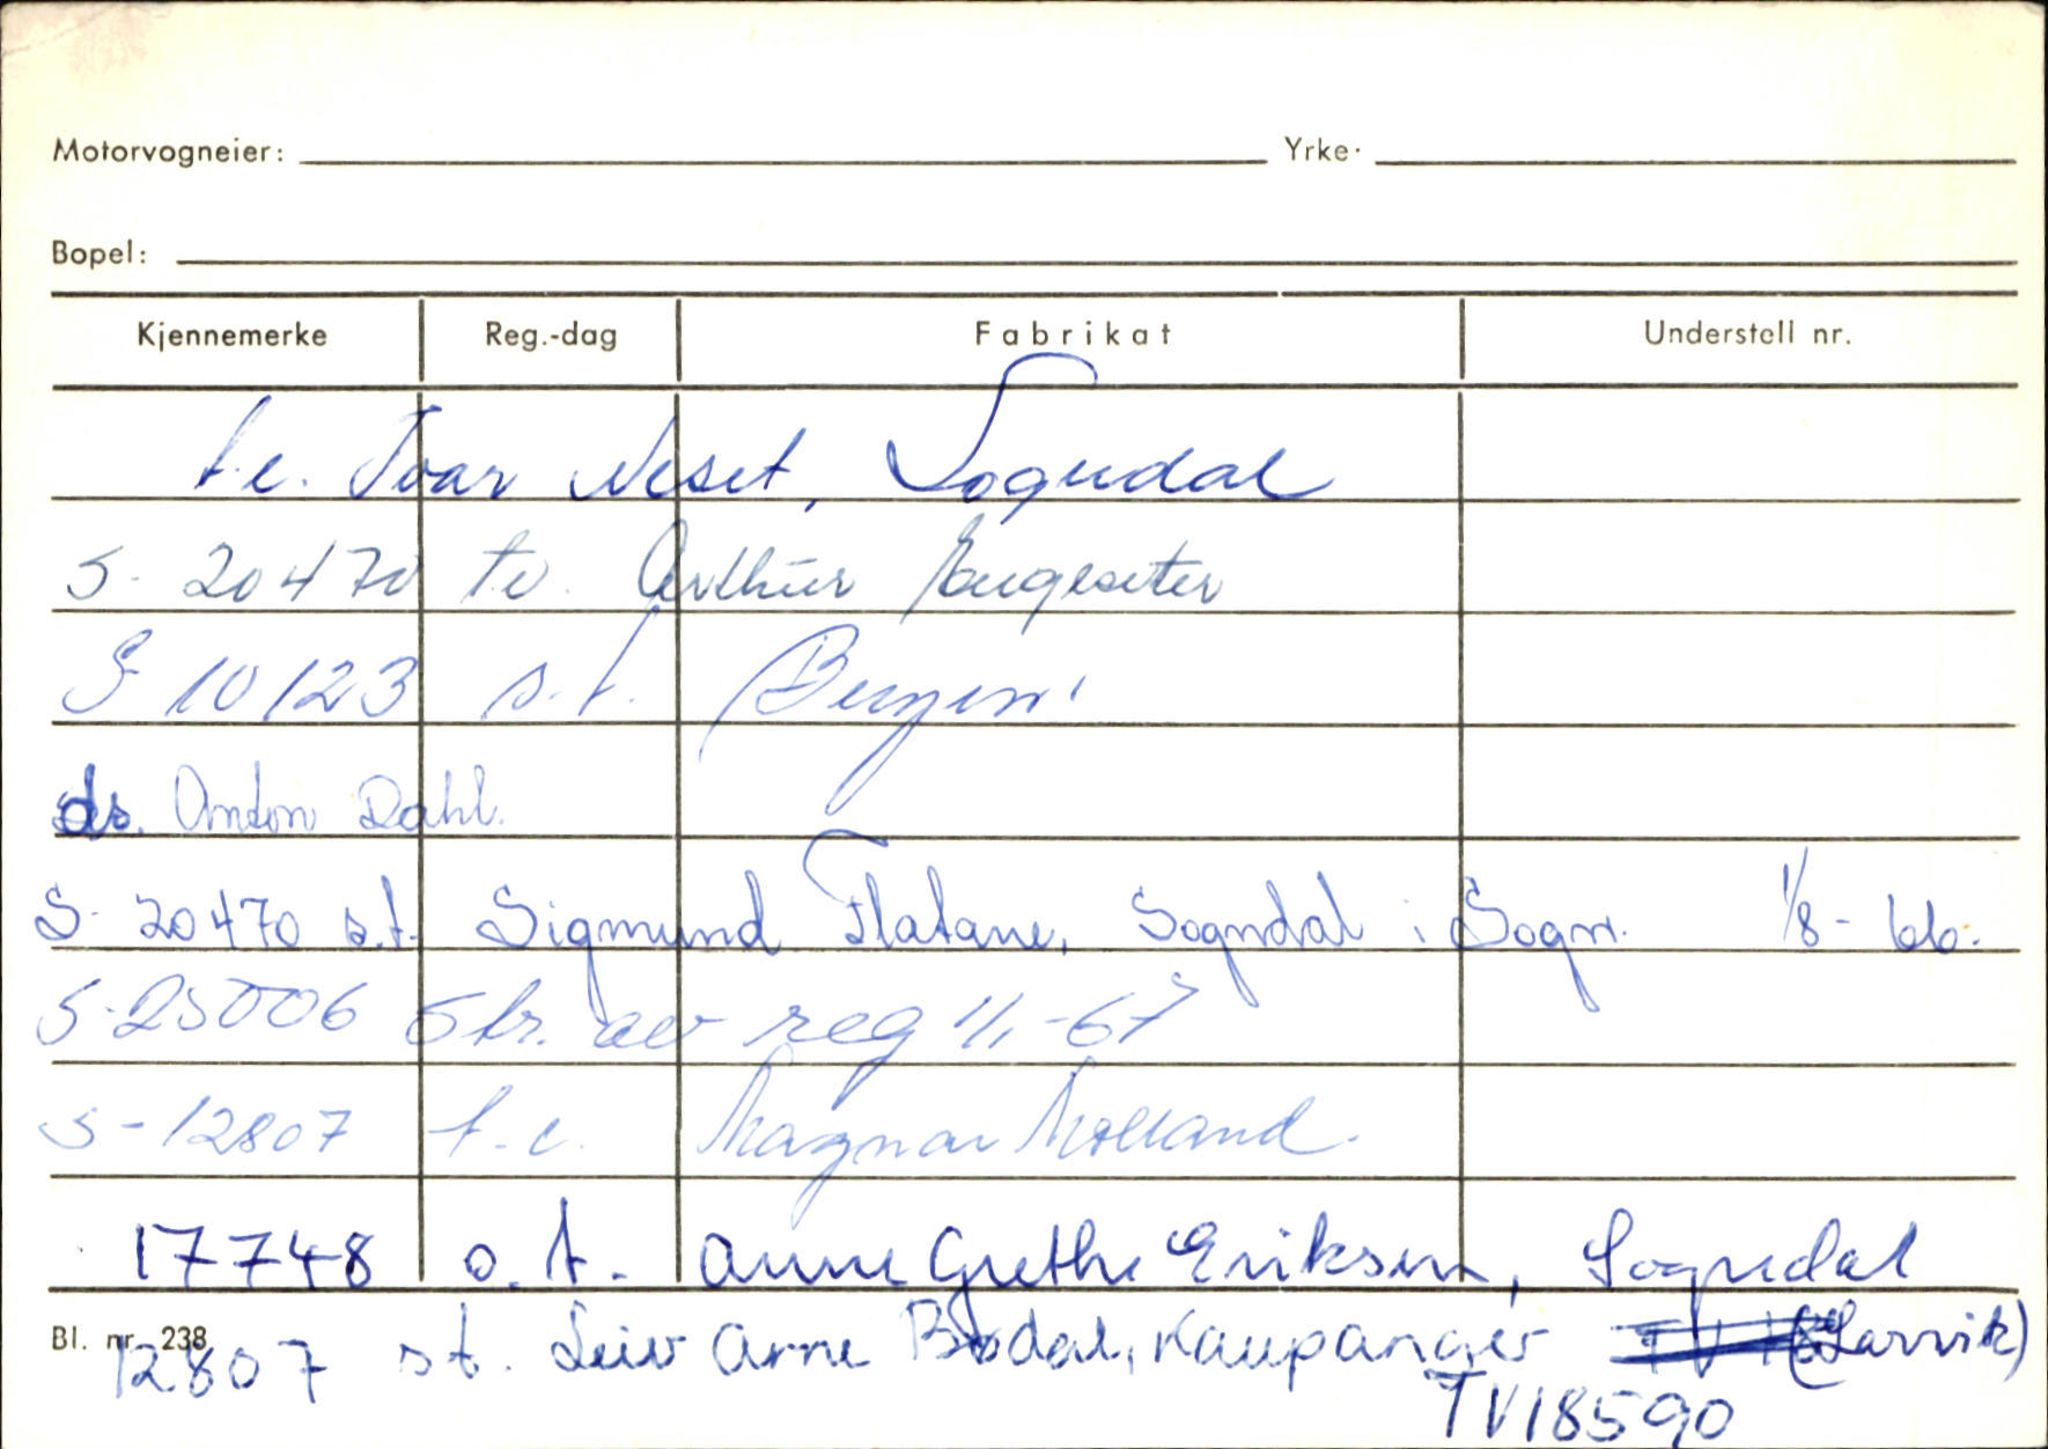 Motorvogneier: Yrke·
Bopel:
Kjennemerke Reg.-dag Fabrikat Understell nr.
t.e. Ivar Neset, Sogndal
S- 20470 to. Arthur
S 10123 s.t. Bergen
ds. Anton Dahl.
S- 20470 s.t. Sigmund Flatane, Sogndal i Sogn. 1/8 - 66.
S-25006 Str. av reg 1/1-67
S-12807 t.e. Magnar Molland.
17748 o.t. Anne Grethe Eriksen, Sogndal
Bl. nr. 238
12807 st. Leiv Arne Bødal, Kaupanger (Larvik)
TV18590